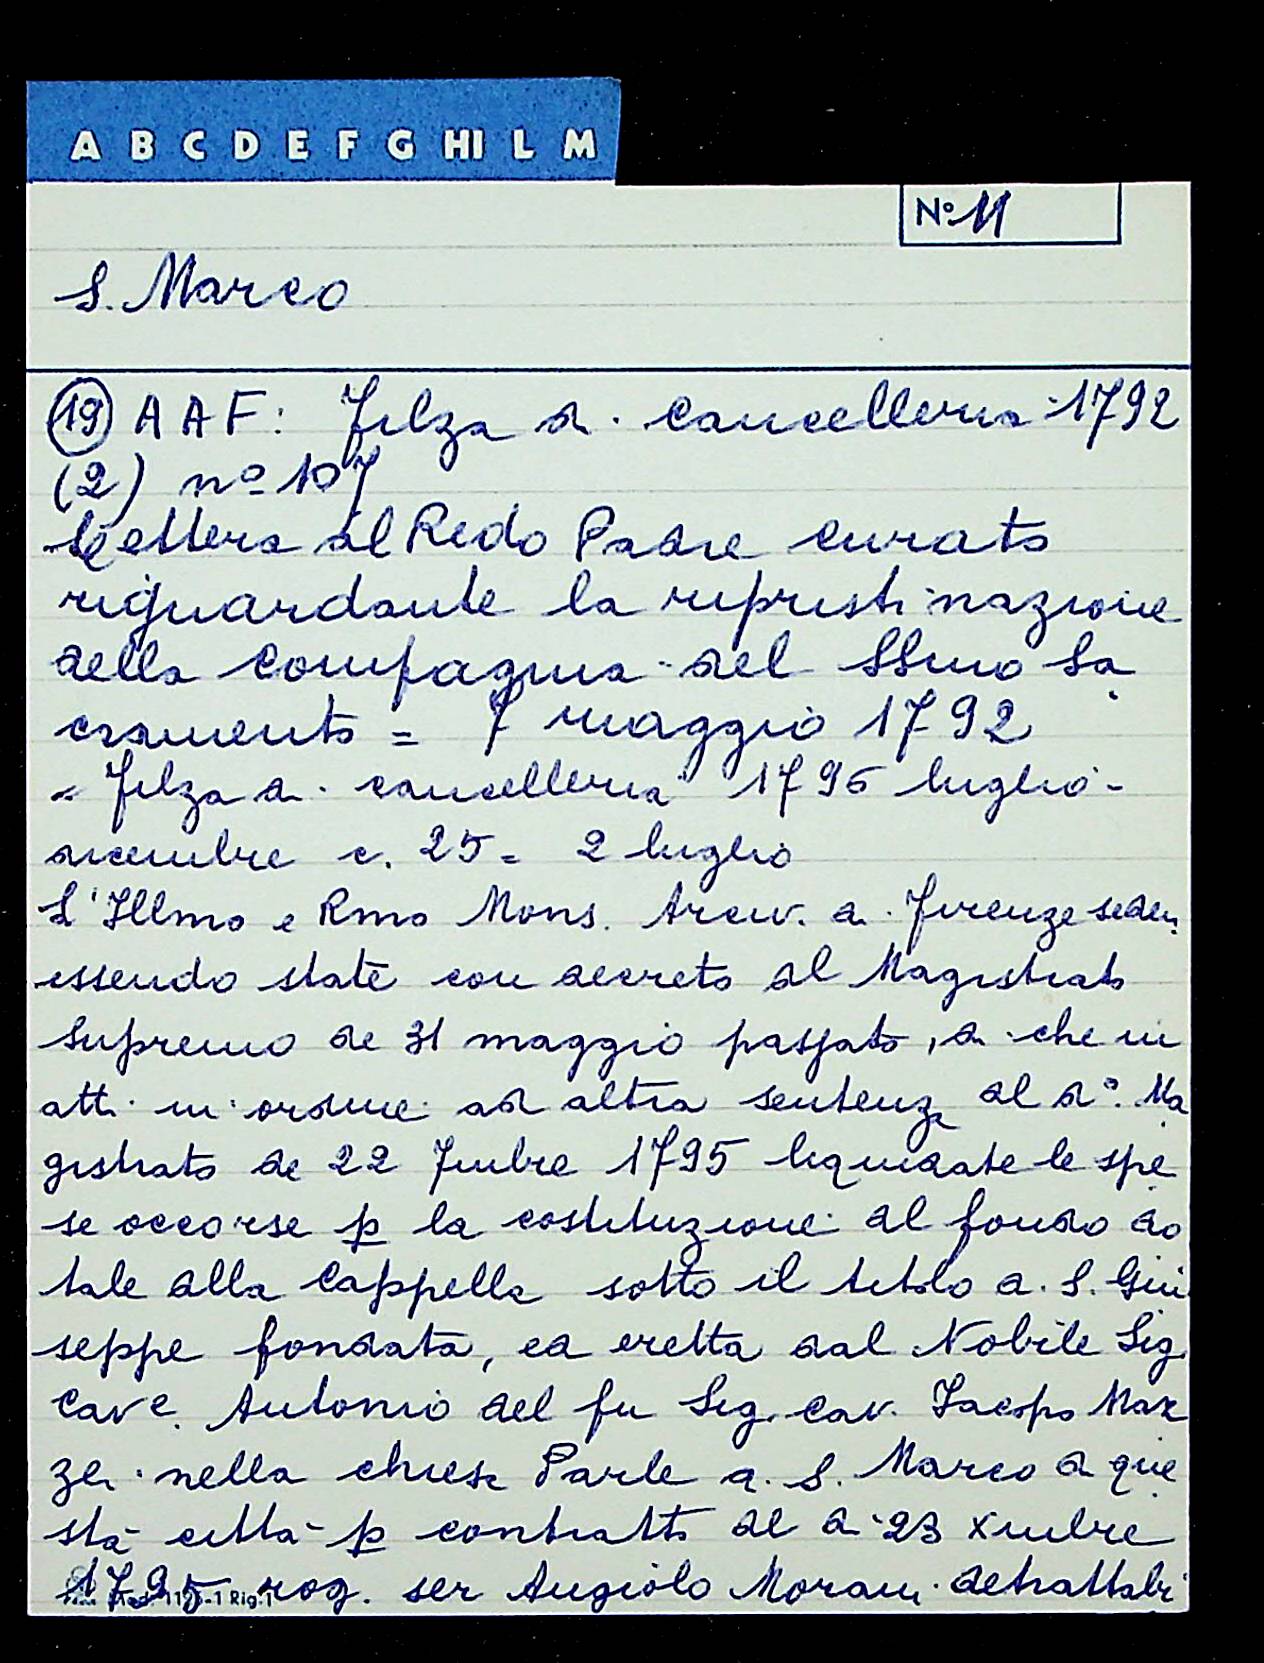 A B C D E F G HI L M
Nº 11
S. Marco
(19) A A F: Filza di cancelleria 1792
(2) nº 107
Lettera al Redo Padre curato
riguardante la ripristinazione
della compagnia del SSmo Sa
cramento = 7 maggio 1792
Filza di cancelleria 1796 luglio -
dicembre c. 25 = 2 luglio
L'Illmo e Rmo Mons. Arciv. di Firenze
essendo state con decreto del Magistrato
Supremo de 31 maggio passato, di che in
atti in ordine ad altra sentenza del dº. Ma
gistrato de 22 7mbre 1795 liquidate le spe
se occorse p la costituzione del fondo do
tale alla Cappella sotto il titolo di S. Giu
seppe fondata, ed eretta dal Nobile Sig.
Cave. Antonio del fu Sig. Cav. Iacopo Maz
zei nella chiesa Parle di S. Marco di que
sta città p contratto del dì 23 Xmbre
1795 rog. ser Angiolo Morani detrattabi